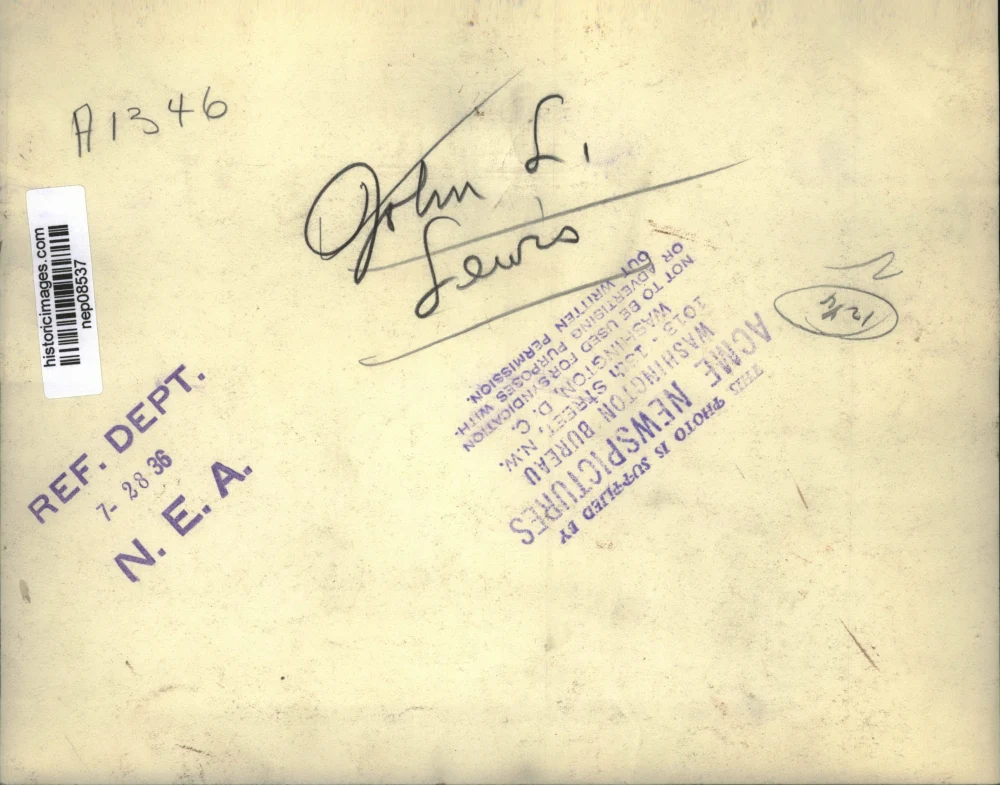 A1346
John L.
Lewis
historicimages.com
nep08537
REF. DEPT.
7-28 36
N. E. A.
THIS PHOTO IS SUPPLIED BY
ACME NEWSPICTURES
WASHINGTON BUREAU
1013 - 13th STREET, N.W.
WASHINGTON, D. C.
NOT TO BE USED FOR SYNDICATION
OR ADVERTISING PURPOSES WITH-
OUT WRITTEN PERMISSION.